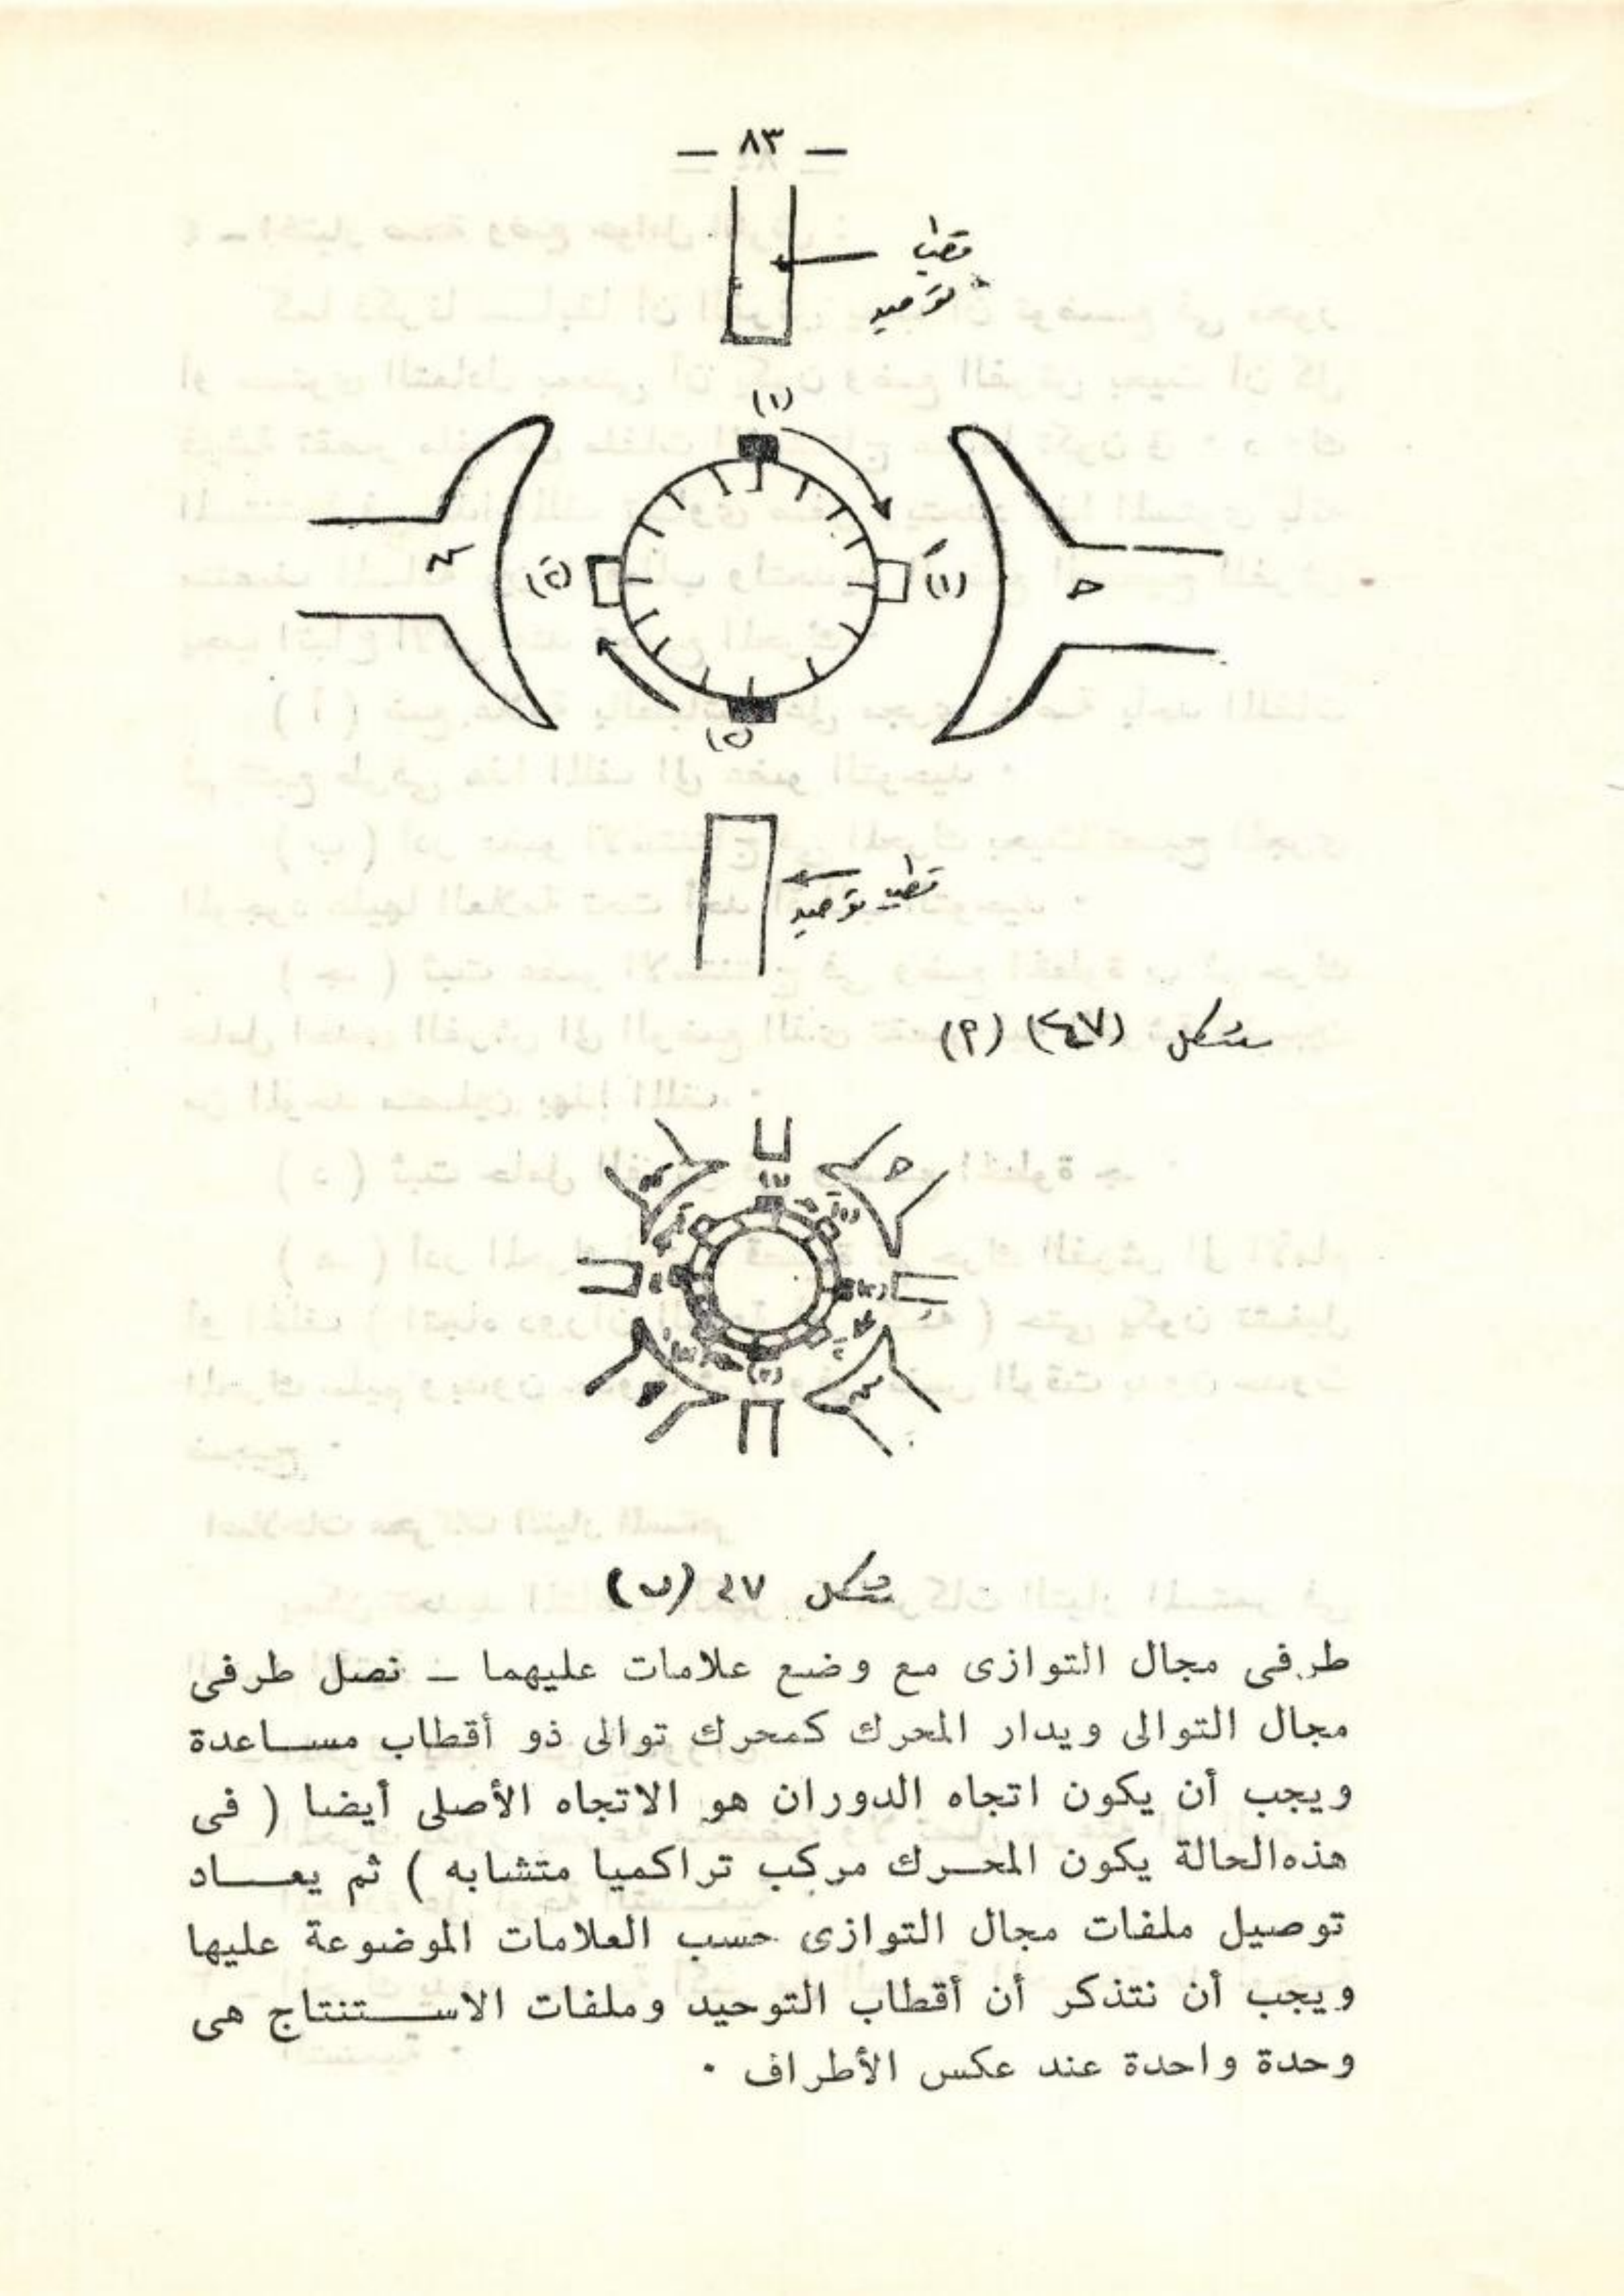 — ٨٣ —
قطب
توحيد
(١)
س
(٢)
(١)
ح
(٢)
قطب
توحيد
شكل (٤٧) (٢)
ح
س
شكل ٤٧ (ب)
طرفى مجال التوازى مع وضع علامات عليهما – نصل طرفى
مجال التوالى ويدار المحرك كمحرك توالى ذو أقطاب مساعدة
ويجب أن يكون اتجاه الدوران هو الاتجاه الأصلى أيضا ( فى
هذه الحالة يكون المحرك مركب تراكميا متشابه ) ثم يعاد
توصيل ملفات مجال التوازى حسب العلامات الموضوعة عليها
ويجب أن نتذكر أن أقطاب التوحيد وملفات الاستنتاج هى
وحدة واحدة عند عكس الأطراف ٠